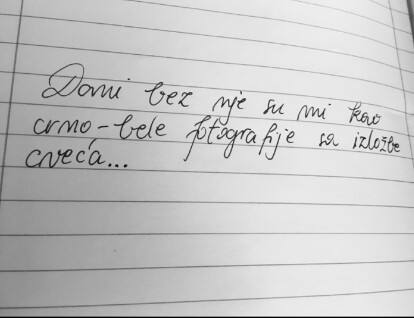 Dani bez nje su mi kao
crno-bele fotografije sa izložbe
cveća...